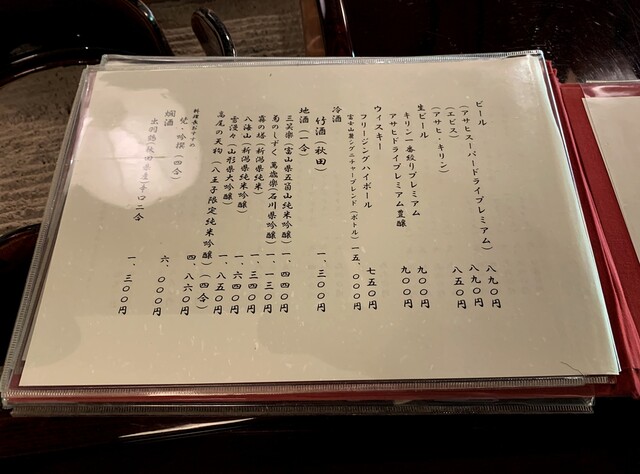 ビール
(アサヒスーパードライプレミアム) 八九〇円
(エビス) 八九〇円
(アサヒ・キリン) 八五〇円
生ビール
キリン一番絞りプレミアム 九〇〇円
アサヒドライプレミアム豊醸 九〇〇円
ウィスキー
フリージングハイボール 七五〇円
富士山麓シグニチャーブレンド(ボトル) 一五、〇〇〇円
冷酒
竹酒(秋田) 一、三〇〇円
地酒(一合)
三笑楽(富山県五箇山純米吟醸) 一、四四〇円
菊のしずく 萬歳樂(石川県吟醸) 一、一三〇円
霧の塔(新潟県純米) 一、三四〇円
八海山(新潟県純米吟醸) 一、六四〇円
雪漫々(山形県大吟醸) 一、八五〇円
高尾の天狗(八王子限定純米吟醸)(四合) 四、八六〇円
料理長おすすめ
梵・吟撰(四合) 六、〇〇〇円
燗酒
出羽鶴(秋田県産)辛口二合 一、三〇〇円